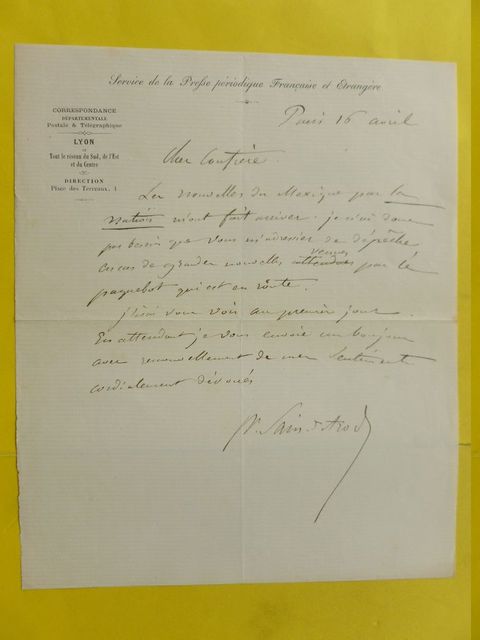 Service de la Presse périodique Française et Etrangère
CORRESPONDANCE
DÉPARTEMENTALE
Postale & Télégraphique
LYON
et
Tout le réseau du Sud, de l'Est
et du Centre
DIRECTION
Place des Terreaux, 1
Paris 16 avril
Cher Confrère.
Les nouvelles du Mexique par la
nation m'ont fait arriver. je n'ai donc
pas besoin que vous m'adressiez de dépêche
en cas de grandes nouvelles venues par le
paquebot qui est en route.
vous voir au premier jour.
En attendant je vous envoie un bonjour
avec renouvellement de mes sentiments
cordialement dévoués